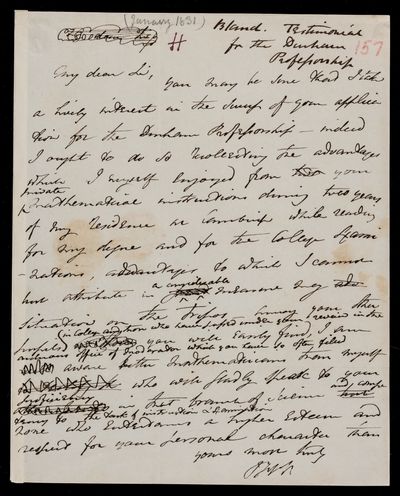 (January 1831)
Bland. Testimonial
for the Durham
Professorship
157
My dear Sir,
you may be sure that I take
a lively interest in the success of your applica
tion for the Durham Professorship — indeed
I ought to do so recollecting the advantages
which I myself enjoyed from your
private
Mathematical instructions during two years
of my residence at Cambridge while reading
for my degree and for the College Exami
-nations, advantages to which I cannot
but attribute in a considerable measure my
situation on the Tripos. Among your other
pupils
in College and from
you will easily find, I am
office of Moderator which you have so often filled
aware better Mathematicians than myself
who will gladly speak to your
proficiency in that branch of Science and
to the task of instruction & Examination
none who entertains a higher esteem and
respect for your personal character than
yours most truly